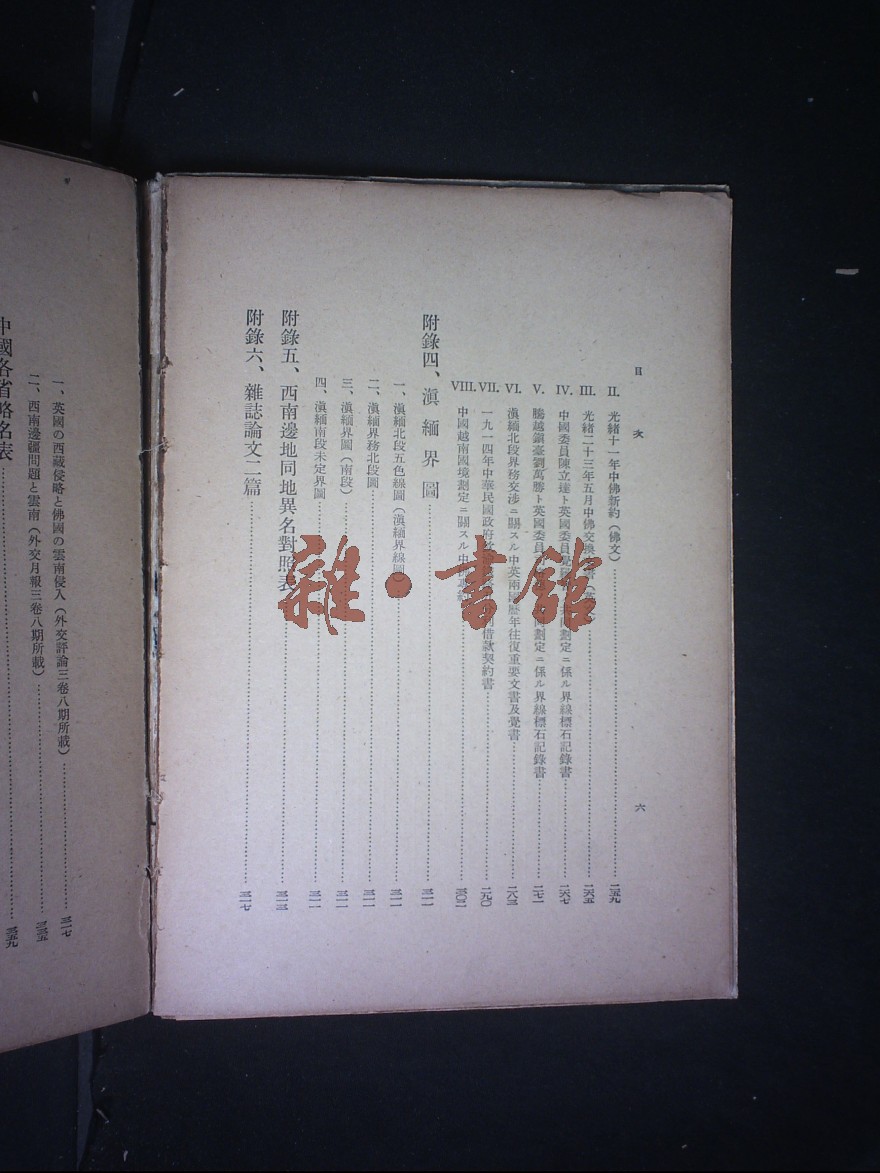 目次
六
II. 光緒十一年中佛新約(佛文)……二五九
III. 光緒二十三年五月中佛交換……二六五
IV. 中國委員陳立達ト英國委員……劃定ニ係ル界線標石記錄書……二六七
V. 騰越鎭臺劉萬勝ト英國委員……劃定ニ係ル界線標石記錄書……二七一
VI. 滇緬北段界務交涉ニ關スル中英兩國歷年往復重要文書及覺書……二八三
VII. 一九一四年中華民國政府……借款契約書……二九〇
VIII. 中國越南國境劃定ニ關スル中……三〇二
附錄四、滇緬界圖……三一一
一、滇緬北段五色線圖(滇緬界線圖)……三一一
二、滇緬界務北段圖……三一一
三、滇緬界圖(南段)……三一一
四、滇緬南段未定界圖……三一一
附錄五、西南邊地同地異名對照表……三一三
附錄六、雜誌論文二篇……三一七
一、英國の西藏侵略と佛國の雲南侵入(外交評論三卷八期所載)……三一七
二、西南邊疆問題と雲南(外交月報三卷八期所載)……三三五
中國各省略名表……三五九
雜・書館